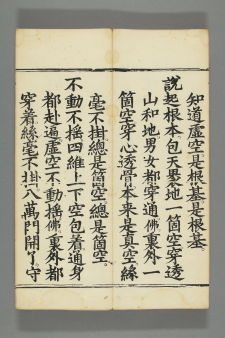 知道虛空是根基是根基
說起根本包天裹地一箇空穿透
山和地男女都穿通佛裏外一
箇空穿心透骨本來是真空絲
毫不掛總是箇空總是箇空
不動不搖四維上下空包着通身
都赴遍虛空不動搖佛裏外都
穿着絲毫不掛八萬門開了守